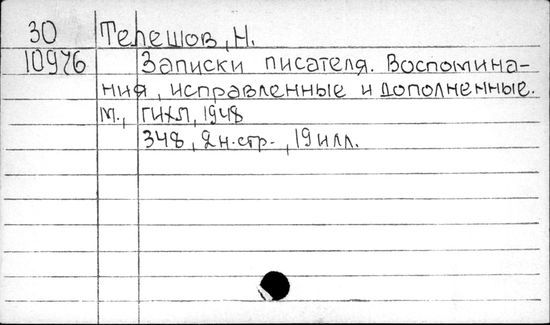 30 Телешов, Н.
10976 Записки писателя. Воспомина-
ния, исправленные и дополненные.
М., ГИХЛ, 1948
348, 2 н. стр., 19 илл.